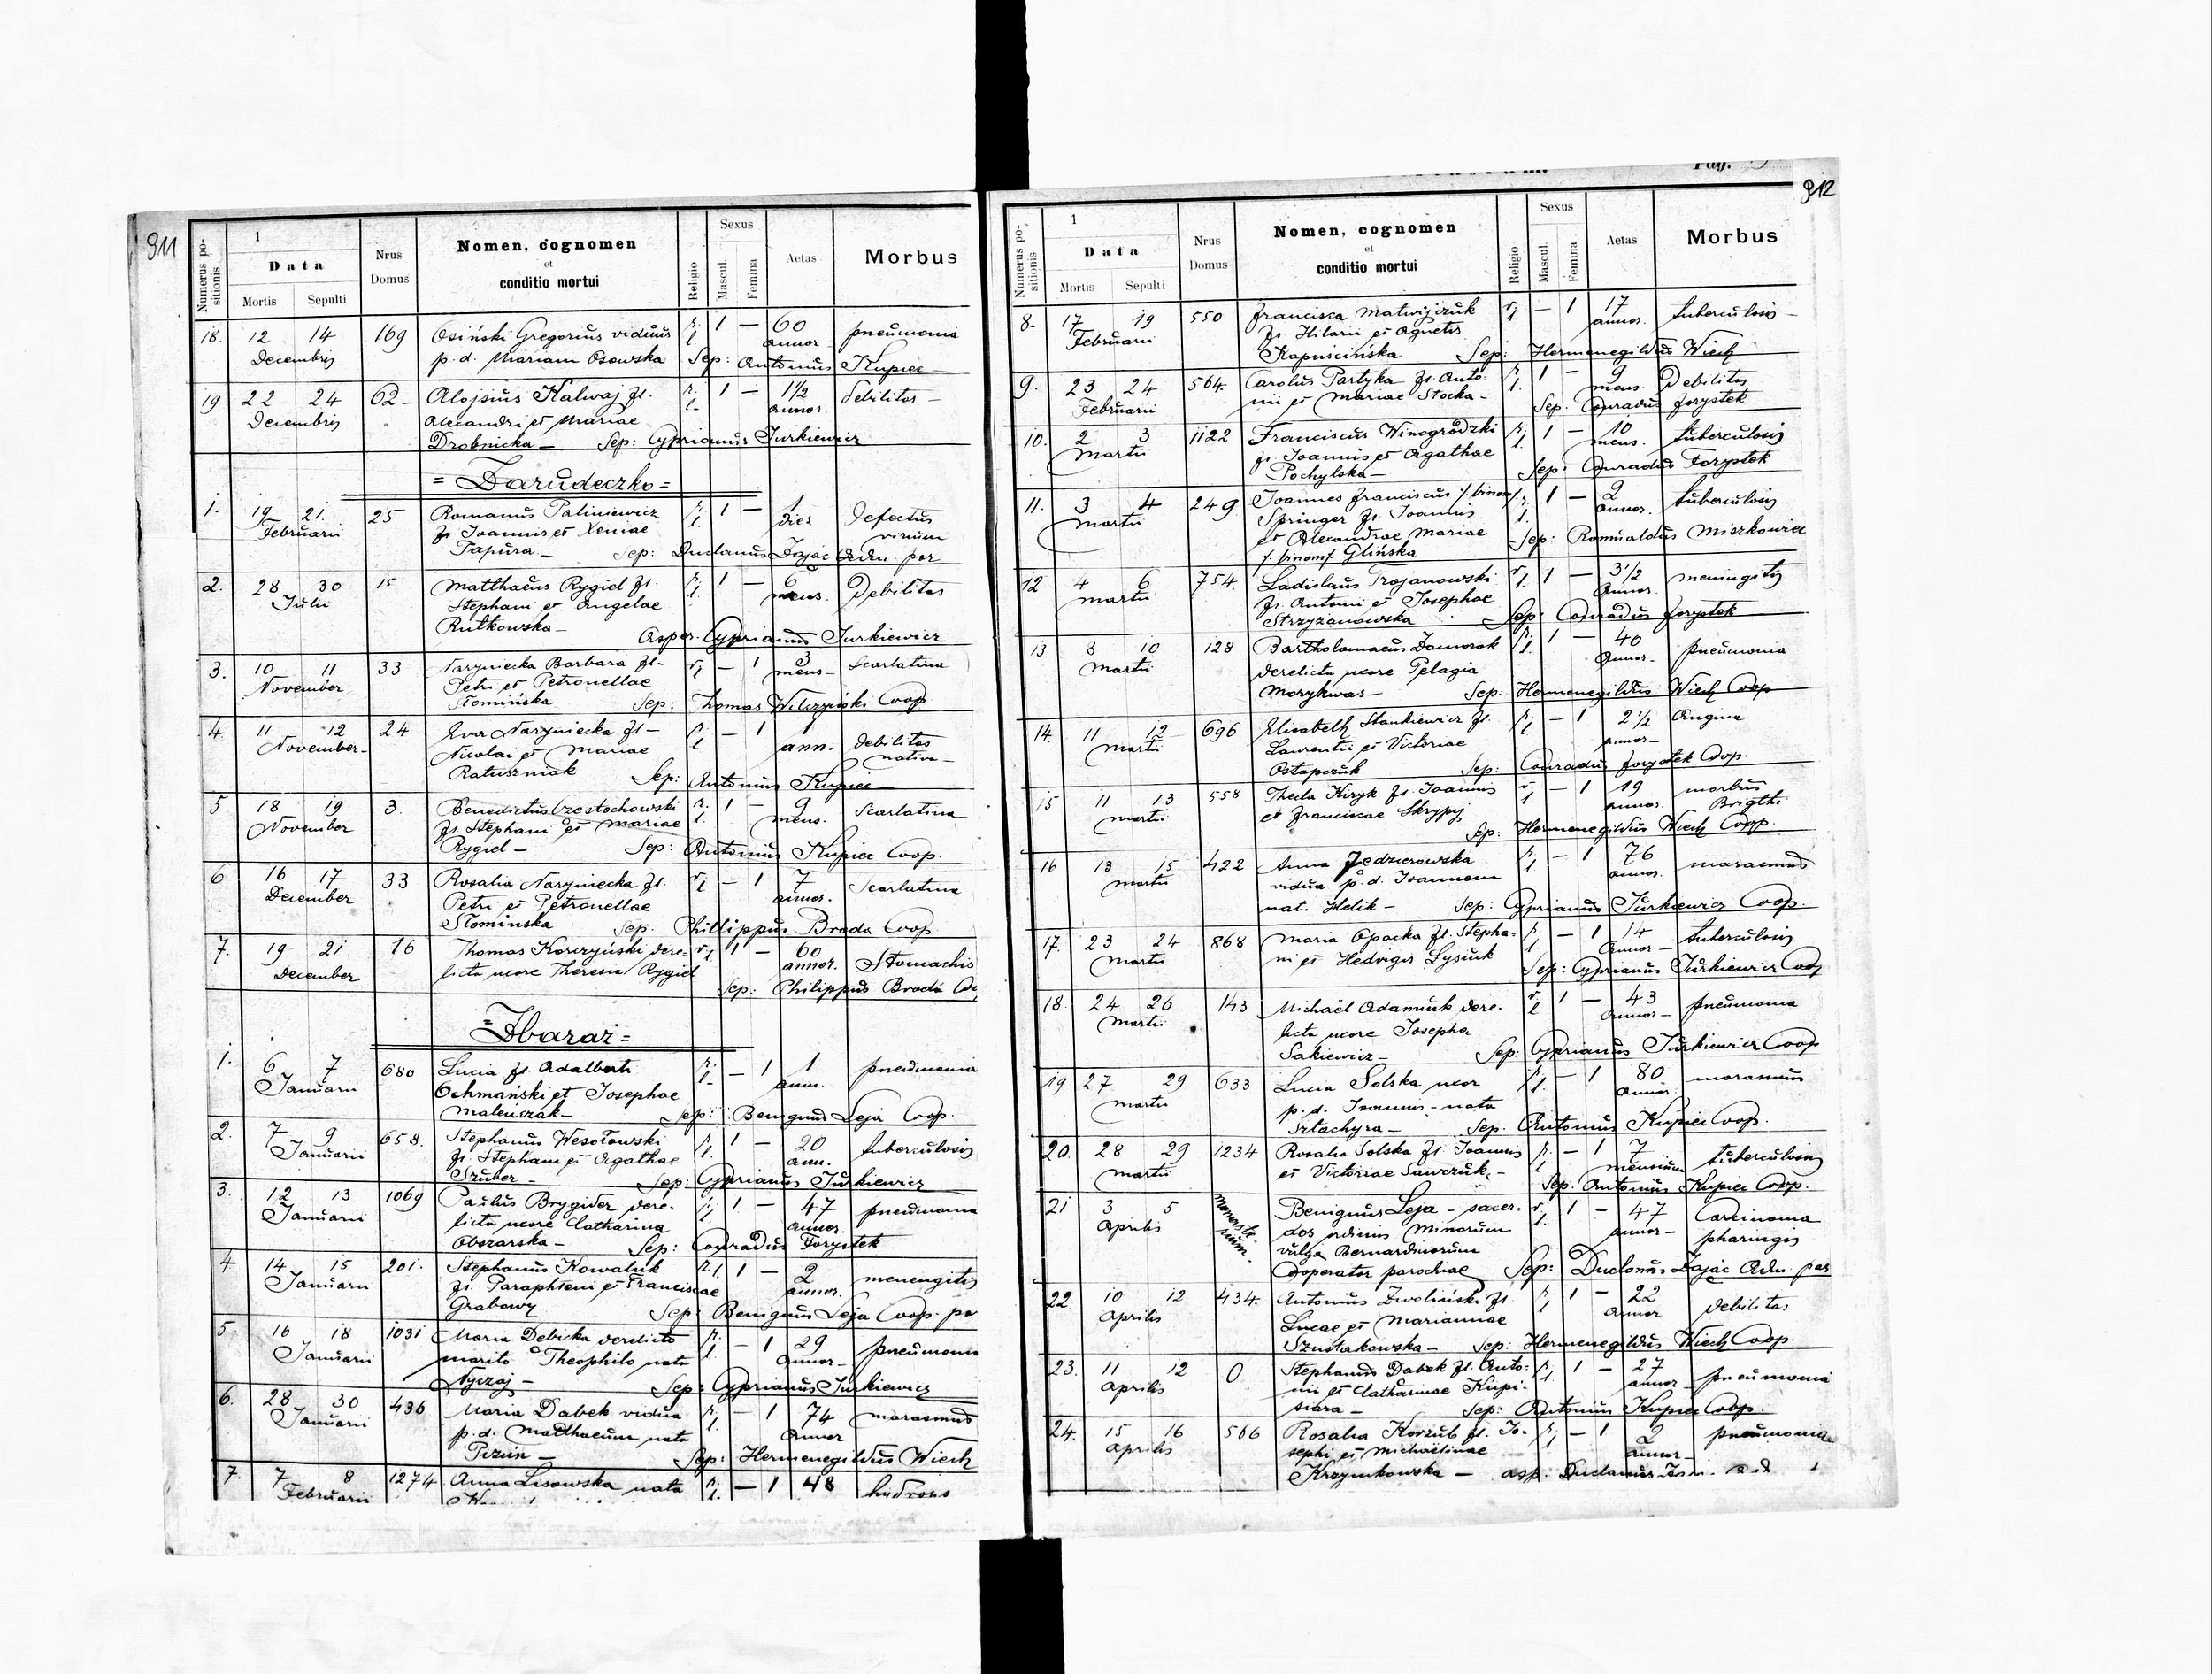 911
Numerus positionis
1
Data
Mortis Sepulti
Nrus Domus
Nomen, cognomen
et
conditio mortui
Religio
Sexus
Mascul. Femina
Aetas
Morbus
18. 12 14 169 Osiński Gregorius viduus r. 1 — 60 pneumonia
Decembris p. d. Mariam Osowska l. annor.
Sep: Antonius Kupiec
19 22 24 62 Alojsius Kalwaj fs. r. 1 — 1 1/2 debilitas —
Decembris Alexandri et Mariae l. annor.
Drobnicka — Sep: Cyprianus Jurkiewicz
= Zarudeczko =
1. 19 21. 25 Romanus Paliniewicz r. 1 — 1 defectus
Februarii fs. Joannis et Xeniae l. dies virium
Papura — Sep: Duclanus Zając Adm. par
2. 28 30 15 Matthaeus Rygiel fs. r. 1 — 6 Debilitas
Julii Stephani et Angelae l. mens.
Rutkowska — Asper. Cyprianus Jurkiewicz
3. 10 11 33 Naryniecka Barbara fs. r. — 1 3 Scarlatina
November Petri et Petronellae l. mens —
Słomińska Sep: Thomas Wilczyński Coop
4. 11 12 24 Eva Naryniecka fs — r. — 1 1 debilitas
November — Nicolai et Mariae l. ann. nativa —
Ratuszniak Sep: Antonius Kupiec
5 18 19 3. Benedictus Częstochowski r. 1 — 9 Scarlatina
November fs. Stephani et Mariae l. mens.
Rygiel — Sep: Antonius Kupiec Coop.
6 16 17 33 Rosalia Naryniecka fs. r. — 1 7 Scarlatina
December Petri et Petronellae l. annor.
Słominska Sep. Phillippus Broda Coop.
7. 19 21. 16 Thomas Korczyński dere- r. 1 — 60 Stomachis
December licta uxore Theresia Rygiel l. annor.
Sep: Philippus Broda
= Zbaraż =
1. 6 7 680 Lucia fs. Adalberti r. — 1 1 pneumonia
Januarii Ochmański et Josephae l. ann.
Maleńczak — Sep: Benignus Leja Coop.
2. 7 9 658. Stephanus Wesołowski r. 1 — 20 tuberculosis
Januarii fs. Stephani et Agathae l. ann.
Szuber — Sep: Cyprianus Jurkiewicz
3. 12 13 1069 Paulus Brygider dere- r. 1 — 47 pneumonia
Januarii licta uxore Catharina l. annor.
Obszarska — Sep: Conradus Forystek
4 14 15 201. Stephanus Kowaluk r. l. 1 — 2 menengitis
Januarii fs. Parapheni et Franciscae annor.
Grabowy Sep: Benignus Leja Coop. pa
5. 16 18 1031 Maria Debicka derelicto r. — 1 29 pneumonia
Januarii marito Theophilo nata l. annor —
Nyczaj — Sep: Cyprianus Jurkiewicz
6. 28 30 436 Maria Dabek vidua r. — 1 74 marasmus
Januarii p. d. Matthaeum nata l. annor
Pizun — Sep: Hermenegildus Wiech
7. 7 8 1274 Anna Lisowska nata r. — 1 48 hydrops
Februarii l.
Pag.
912
Numerus positionis
1
Data
Mortis Sepulti
Nrus Domus
Nomen, cognomen
et
conditio mortui
Religio
Sexus
Mascul. Femina
Aetas
Morbus
8. 17 19 550 Francisca Matwijczuk r. — 1 17 tuberculosis —
Februarii fs. Hilarii et Agnetis l. annor.
Kapuścińska Sep: Hermenegildus Wiech
9. 23 24 564. Carolus Partyka fs. Anto- r. 1 — 9 Debilitas
Februarii nii et Mariae Stocka — l. mens.
Sep. Conradus Forystek
10. 2 3 1122 Franciscus Winogrodzki r. 1 — 10 tuberculosis
Martii fs. Joannis et Agathae l. mens.
Pochylska — Sep: Conradus Forystek
11. 3 4 249 Joannes Franciscus /. binom/. r. 1 — 2 tuberculosis
Martii Springer fs. Joannis l. annor.
et Alexandrae Mariae Sep: Romualdus Miszkowicz
/. binom/. Glińska
12 4 6 754. Ladislaus Trojanowski r. 1 — 3 1/2 meningitis
Martii fs. Antoni et Josephae l. annor.
Strzyzanowska Sep: Conradus Forystek
13 8 10 128 Bartholomaeus Zamorok r. 1 — 40 pneumonia
Martii derelicta uxore Pelagia l. annor —
Morykwas — Sep: Hermenegildus Wiech Coop
14. 11 12 696 Elisabeth Stankiewicz fs. r. — 1 2 1/2 Angina
Martii Laurentii et Victoriae l. annor —
Ostapczuk Sep: Conradus Forystek Coop.
15 11 13 558 Thecla Kiryk fs. Joannis r. — 1 19 morbus
Martii et Franciscae Skrypij l. annor. Brigthi
Sep: Hermenegildus Wiech Coop.
16 13 15 422 Anna Jedzierowska r. — 1 76 marasmus
Martii vidua p. d. Joannem l. annor.
nat. Helik — Sep: Cyprianus Jurkiewicz Coop.
17. 23 24 868 Maria Opacka fs. Stepha- r. — 1 14 tuberculosis
Martii ni et Hedvigis Lysiuk l. annor —
Sep: Cyprianus Jurkiewicz Coop
18. 24 26 143 Michaël Adamiuk dere- r. 1 — 43 pneumonia
Martii licta uxore Josepha l. annor —
Sakiewicz — Sep: Cyprianus Jurkiewicz Coop
19 27 29 633 Lucia Solska uxor r. — 1 80 marasmus
Martii p. d. Joannis — nata l. annor.
Sztachyra — Sep. Antonius Kupiec Coop.
20. 28 29 1234 Rosalia Solska fs. Joannis r. — 1 7 tuberculosis
Martii et Victoriae Sawczuk. — l. mensium
Sep. Antonius Kupiec Coop.
21 3 5 monasterium Benignus Leja — sacer- r. 1 — 47 Carcinoma
Aprilis dos ordinis Minorum l. annor — pharingis
vulgo Bernardinorum
Cooperator parochiae Sep: Duclanus Zając Adm. par
22. 10 12 434. Antonius Zwoliński fs. r. 1 — 22 debilitas
Aprilis Lucae et Mariannae l. annor
Szustakowska — Sep: Hermenegildus Wiech Coop.
23. 11 12 0 Stephanus Dabek fs. Anto- r. 1 — 27 pneumonia
Aprilis nii et Catharinae Kupi- l. annor
siara — Sep: Antonius Kupiec Coop.
24. 15 16 566 Rosalia Korzub fs. Jo- r. — 1 2 pneumonia
Aprilis sephi et Michaëlinae l. annor —
Krzymkowska — asp. Duclanus